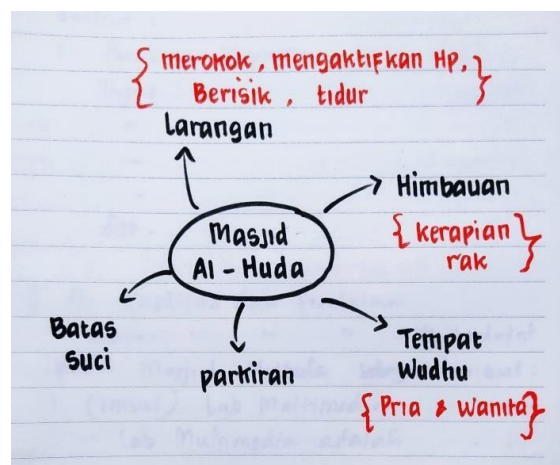 { merokok, mengaktifkan Hp, }
Berisik, tidur
Larangan
Himbauan
{ kerapian }
rak
Masjid
Al - Huda
Batas
Suci
parkiran
Tempat
Wudhu
{ Pria & Wanita }